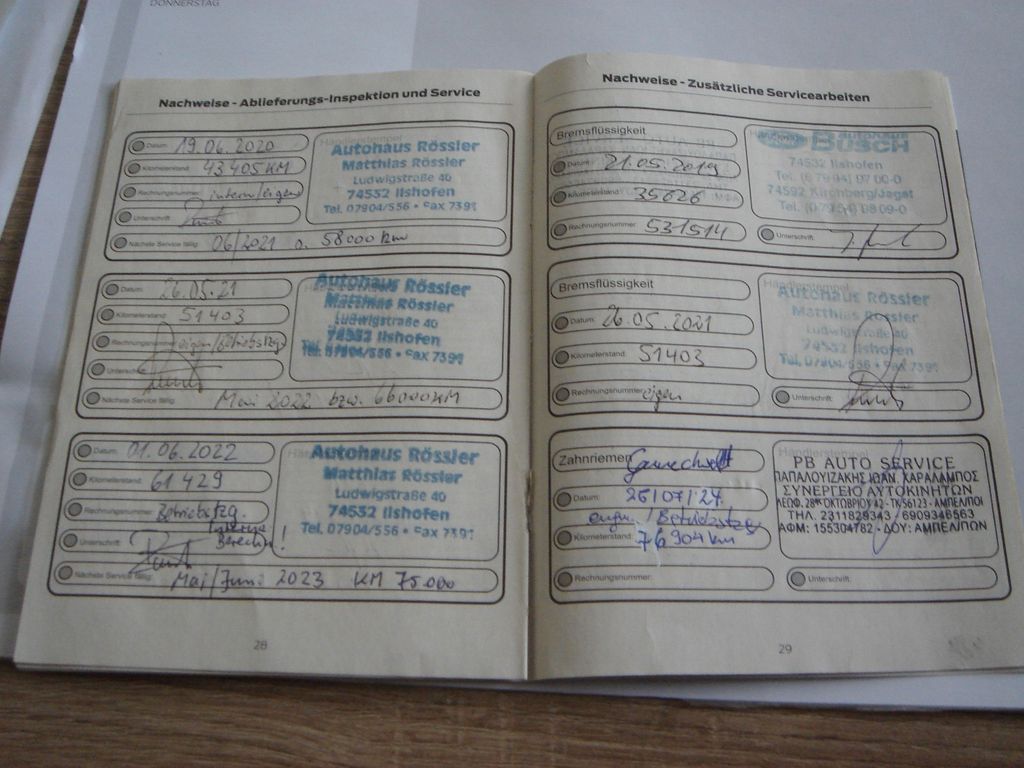 DONNERSTAG
Nachweise - Ablieferungs-Inspektion und Service
Datum: 19.06.2020
Kilometerstand: 43 405 KM
Rechnungsnummer: intern/eigen
Unterschrift:
Nächste Service fällig: 06/2021 o. 58000 km
Händlerstempel
Autohaus Rössler
Matthias Rössler
Ludwigstraße 40
74532 Ilshofen
Tel. 07904/556 • Fax 7391
Datum: 26.05.21
Kilometerstand: 51403
Rechnungsnummer: eigen/Betriebsfzg
Unterschrift:
Nächste Service fällig: Mai 2022 bzw. 66000 KM
Autohaus Rössler
Matthias Rössler
Ludwigstraße 40
74532 Ilshofen
Tel. 07904/556 • Fax 7391
Datum: 01.06.2022
Kilometerstand: 61 429
Rechnungsnummer: Betriebsfzg.
Interne
Unterschrift: Berechn!
Nächste Service fällig: Mai/Juni 2023 KM 75.000
Autohaus Rössler
Matthias Rössler
Ludwigstraße 40
74532 Ilshofen
Tel. 07904/556 • Fax 7391
28
Nachweise - Zusätzliche Servicearbeiten
Bremsflüssigkeit
Datum: 21.05.2019
Kilometerstand: 35626
Rechnungsnummer: 531514
Unterschrift:
autohaus
BUSCH
74532 Ilshofen
Tel. (0 79 04) 97 00-0
74592 Kirchberg/Jagst
Tel. (0 79 54) 98 09-0
Bremsflüssigkeit
Datum: 26.05.2021
Kilometerstand: 51403
Rechnungsnummer: eigen
Unterschrift:
Händlerstempel
Autohaus Rössler
Matthias Rössler
Ludwigstraße 40
74532 Ilshofen
Tel. 07904/556 • Fax 7391
Zahnriemen Gewechselt
Datum: 26/07/24
eigen / Betriebsfzg
Kilometerstand: 76 904 km
Rechnungsnummer:
Unterschrift:
Händlerstempel
PB AUTO SERVICE
ΠΑΠΑΛΟΥΙΖΑΚΗΣ ΙΩΑΝ. ΧΑΡΑΛΑΜΠΟΣ
ΣΥΝΕΡΓΕΙΟ ΑΥΤΟΚΙΝΗΤΩΝ
ΛΕΩΦ. 28ης ΟΚΤΩΒΡΙΟΥ 42 - ΤΚ 56123 - ΑΜΠΕΛΠΟΙ
ΤΗΛ. 2311829343 / 6909346663
ΑΦΜ: 155304782 - ΔΟΥ: ΑΜΠΕΛ/ΠΩΝ
29